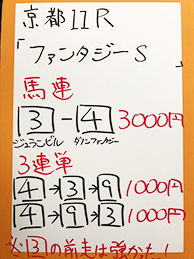 京都11R
「ファンタジーS
馬連
3-4 3000円
ジュランビル ダノンファンタジー
3連単
4→3→9 1000円
4→9→3 1000円
※3の前走は強かった!